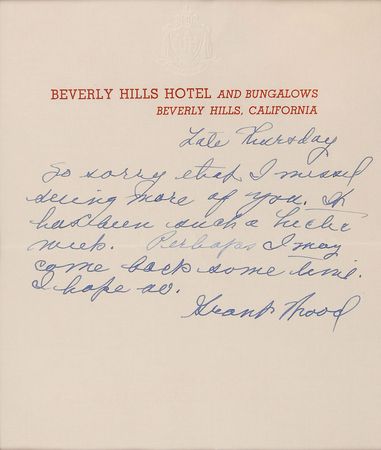 BEVERLY HILLS HOTEL AND BUNGALOWS
BEVERLY HILLS, CALIFORNIA
Late Thursday
So sorry that I missed
seeing more of you. It
has been such a hectic
week. Perhaps I may
come back some time.
I hope so.
Grant Wood